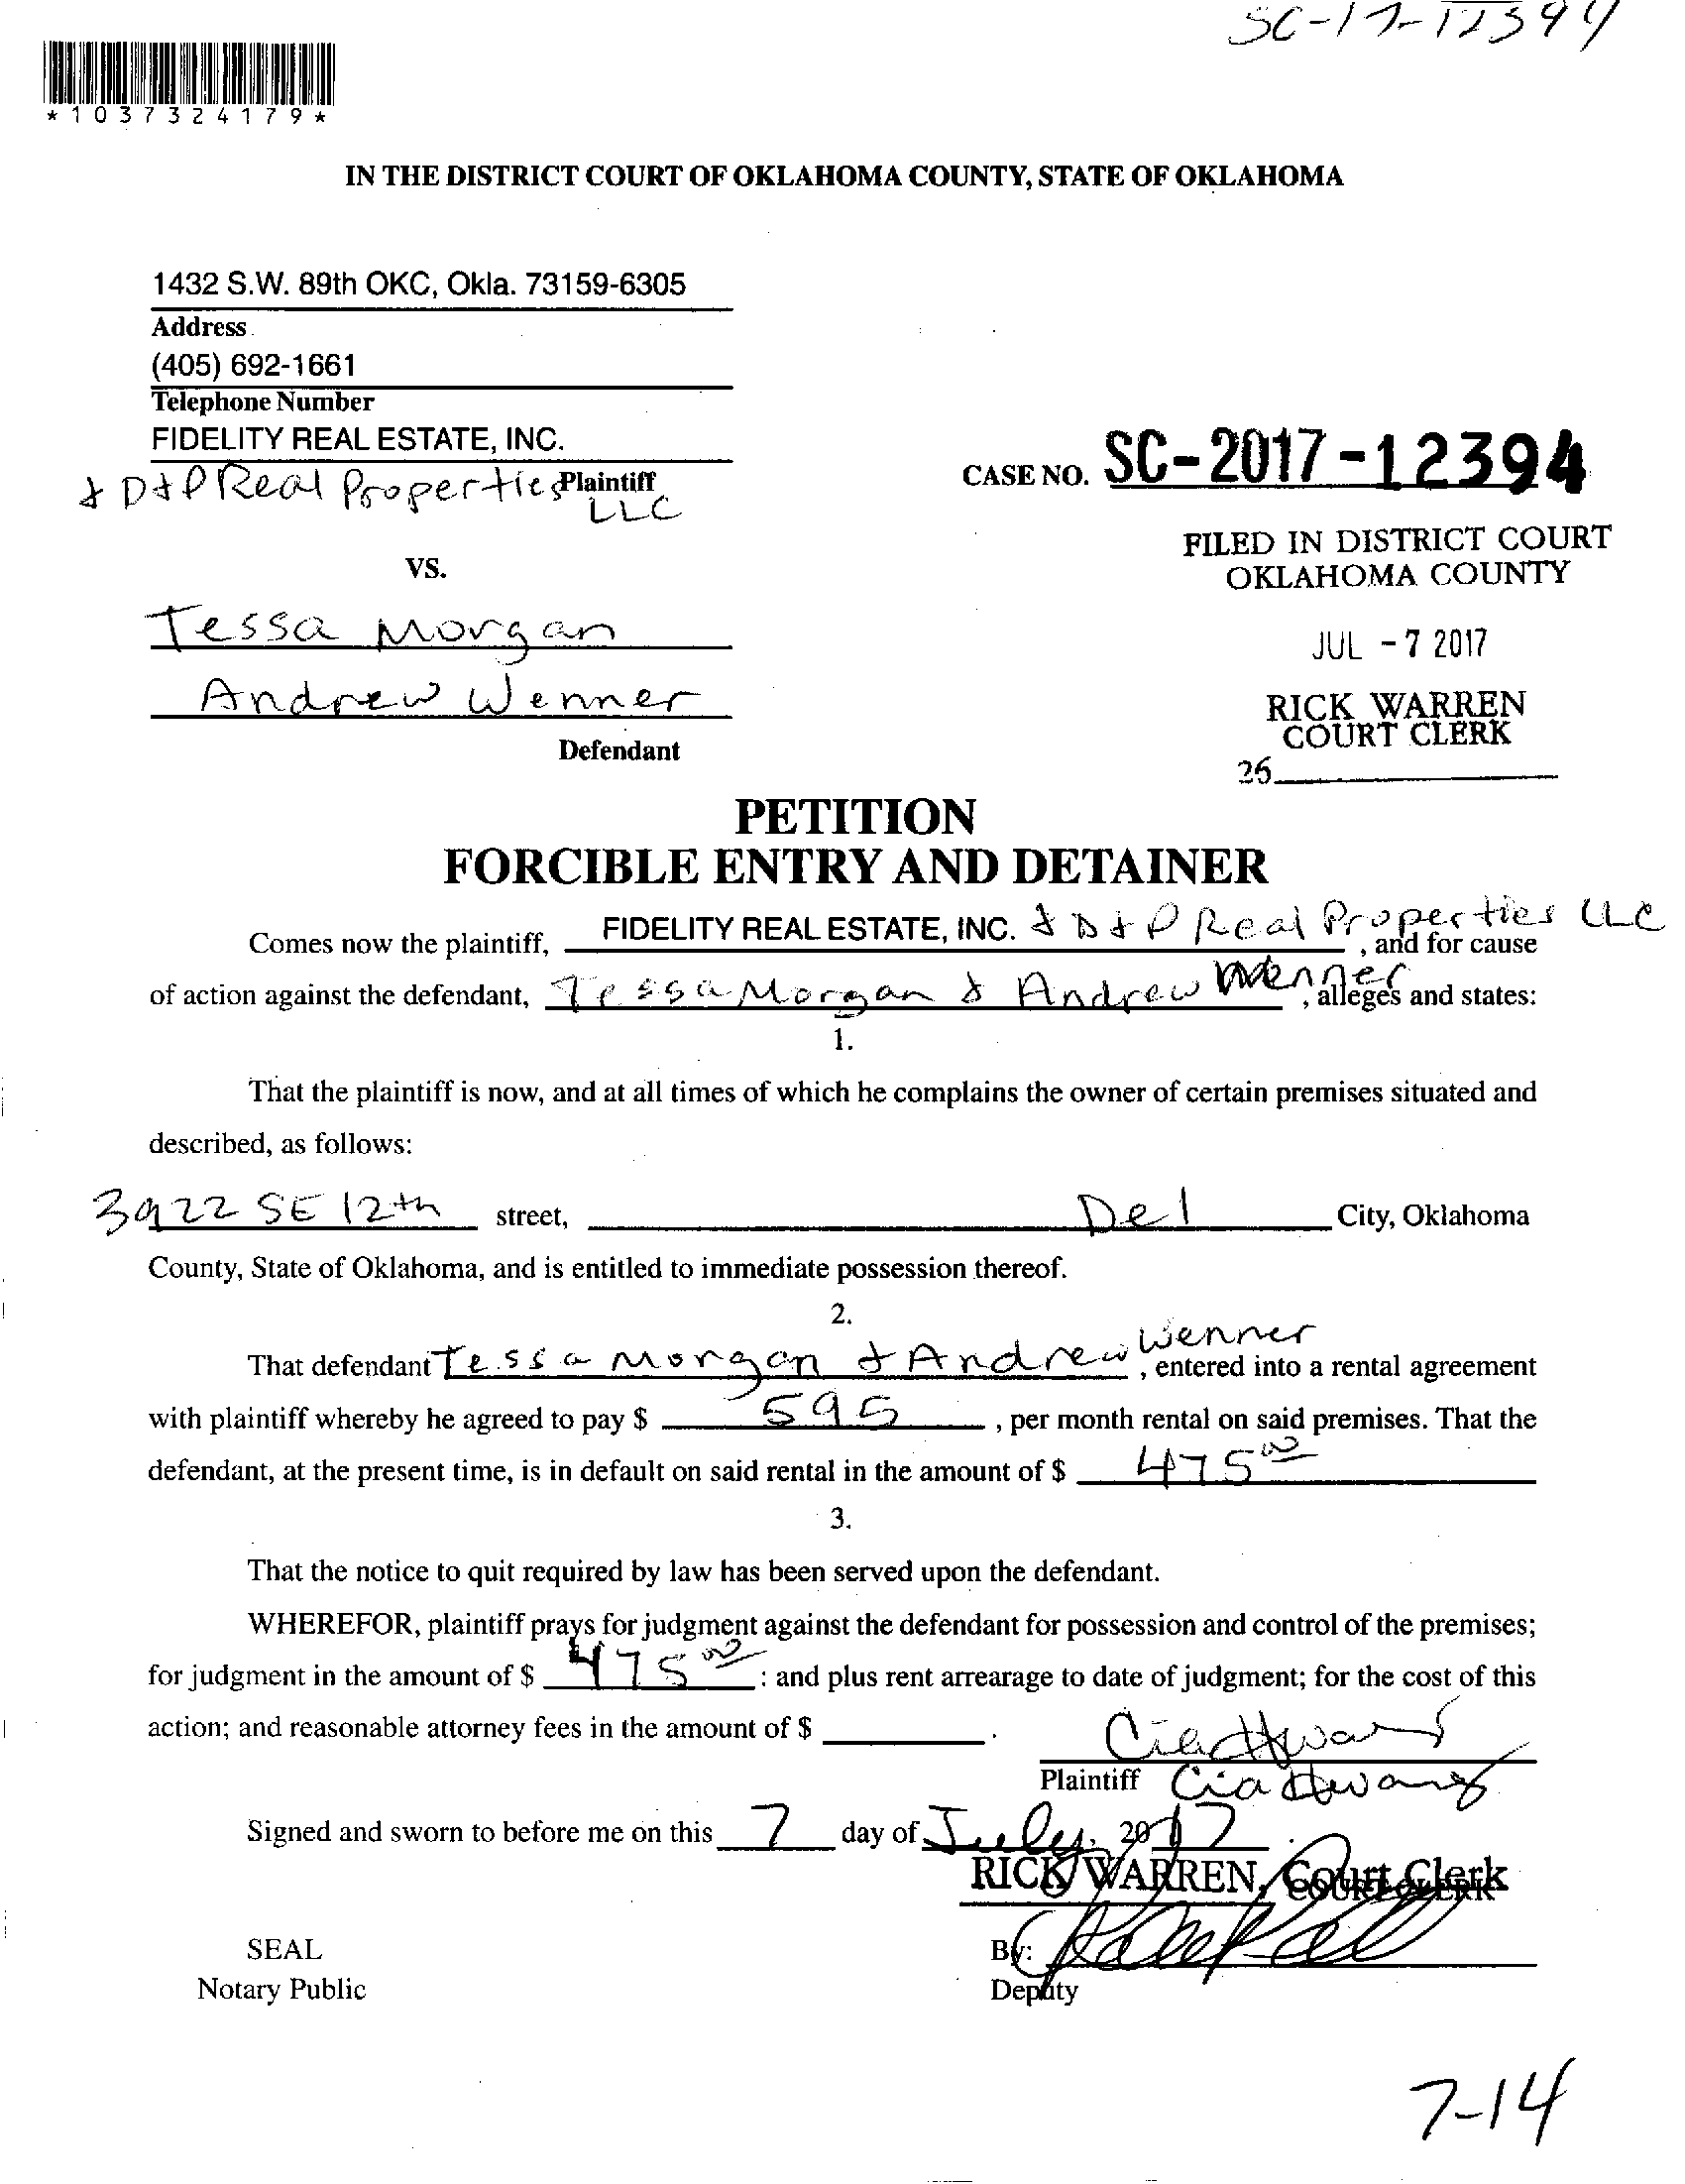 SC-17-12394
*1037324179*
IN THE DISTRICT COURT OF OKLAHOMA COUNTY, STATE OF OKLAHOMA
1432 S.W. 89th OKC, Okla. 73159-6305
Address
(405) 692-1661
Telephone Number
FIDELITY REAL ESTATE, INC.
& D&P Real Properties LLC
Plaintiff
CASE NO. SC-2017-12394
FILED IN DISTRICT COURT
OKLAHOMA COUNTY
VS.
Tessa Morgan
JUL -7 2017
Andrew Wenner
RICK WARREN
COURT CLERK
Defendant
26
PETITION
FORCIBLE ENTRY AND DETAINER
Comes now the plaintiff, FIDELITY REAL ESTATE, INC. & D&P Real Properties LLC, and for cause
of action against the defendant, Tessa Morgan & Andrew Wenner, alleges and states:
1.
That the plaintiff is now, and at all times of which he complains the owner of certain premises situated and
described, as follows:
3922 SE 12th street, Del City, Oklahoma
County, State of Oklahoma, and is entitled to immediate possession thereof.
2.
That defendant Tessa Morgan & Andrew Wenner, entered into a rental agreement
with plaintiff whereby he agreed to pay $ 595, per month rental on said premises. That the
defendant, at the present time, is in default on said rental in the amount of $ 475 00
3.
That the notice to quit required by law has been served upon the defendant.
WHEREFOR, plaintiff prays for judgment against the defendant for possession and control of the premises;
for judgment in the amount of $ 475 00 : and plus rent arrearage to date of judgment; for the cost of this
action; and reasonable attorney fees in the amount of $ .
Cia Hwang
Plaintiff Cia Hwang
Signed and sworn to before me on this 7 day of July, 2017
RICK WARREN, Court Clerk
COURT CLERK
SEAL
By:
Notary Public
Deputy
7-14